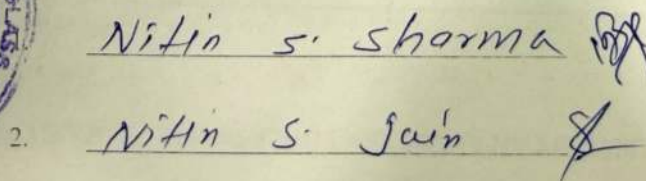 Nitin S. Sharma
2. Nitin S. Jain